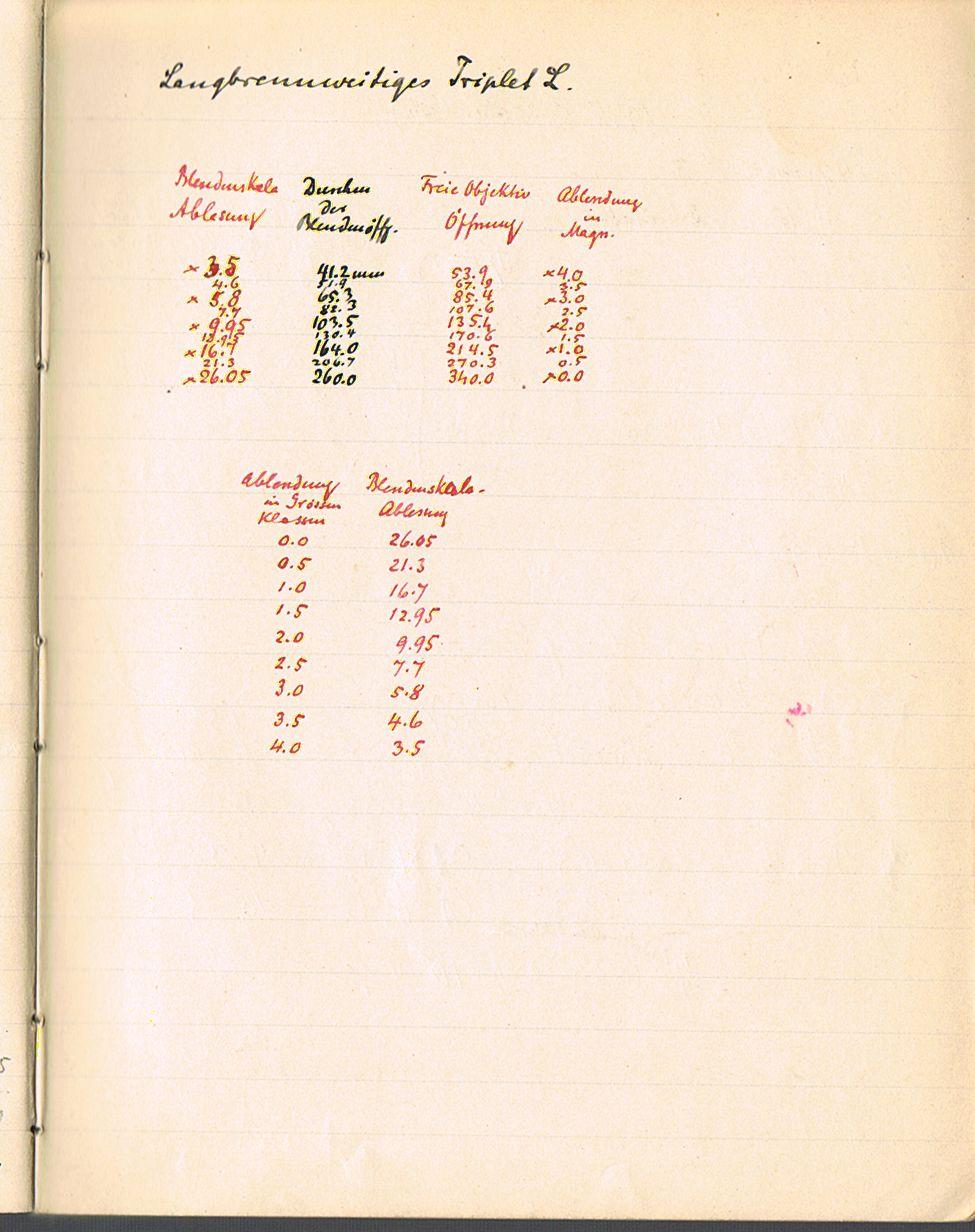 Langbrennweitiges Triplet L.
Blendenskala Durchm Freie Objektiv Abblendung
Ablesung der Öffnung in
Blendenöffg. Magn.
× 3.5 41.2 mm 53.9 ×4.0
4.6 51.9 67.9 3.5
× 5.8 65.3 85.4 ×3.0
7.7 82.3 107.6 2.5
× 9.95 103.5 135.4 ×2.0
12.95 130.4 170.6 1.5
×16.7 164.0 214.5 ×1.0
21.3 206.7 270.3 0.5
×26.05 260.0 340.0 ×0.0
Ablendung Blendenskala-
in Grössen Ablesung
Klassen
0.0 26.05
0.5 21.3
1.0 16.7
1.5 12.95
2.0 9.95
2.5 7.7
3.0 5.8
3.5 4.6
4.0 3.5